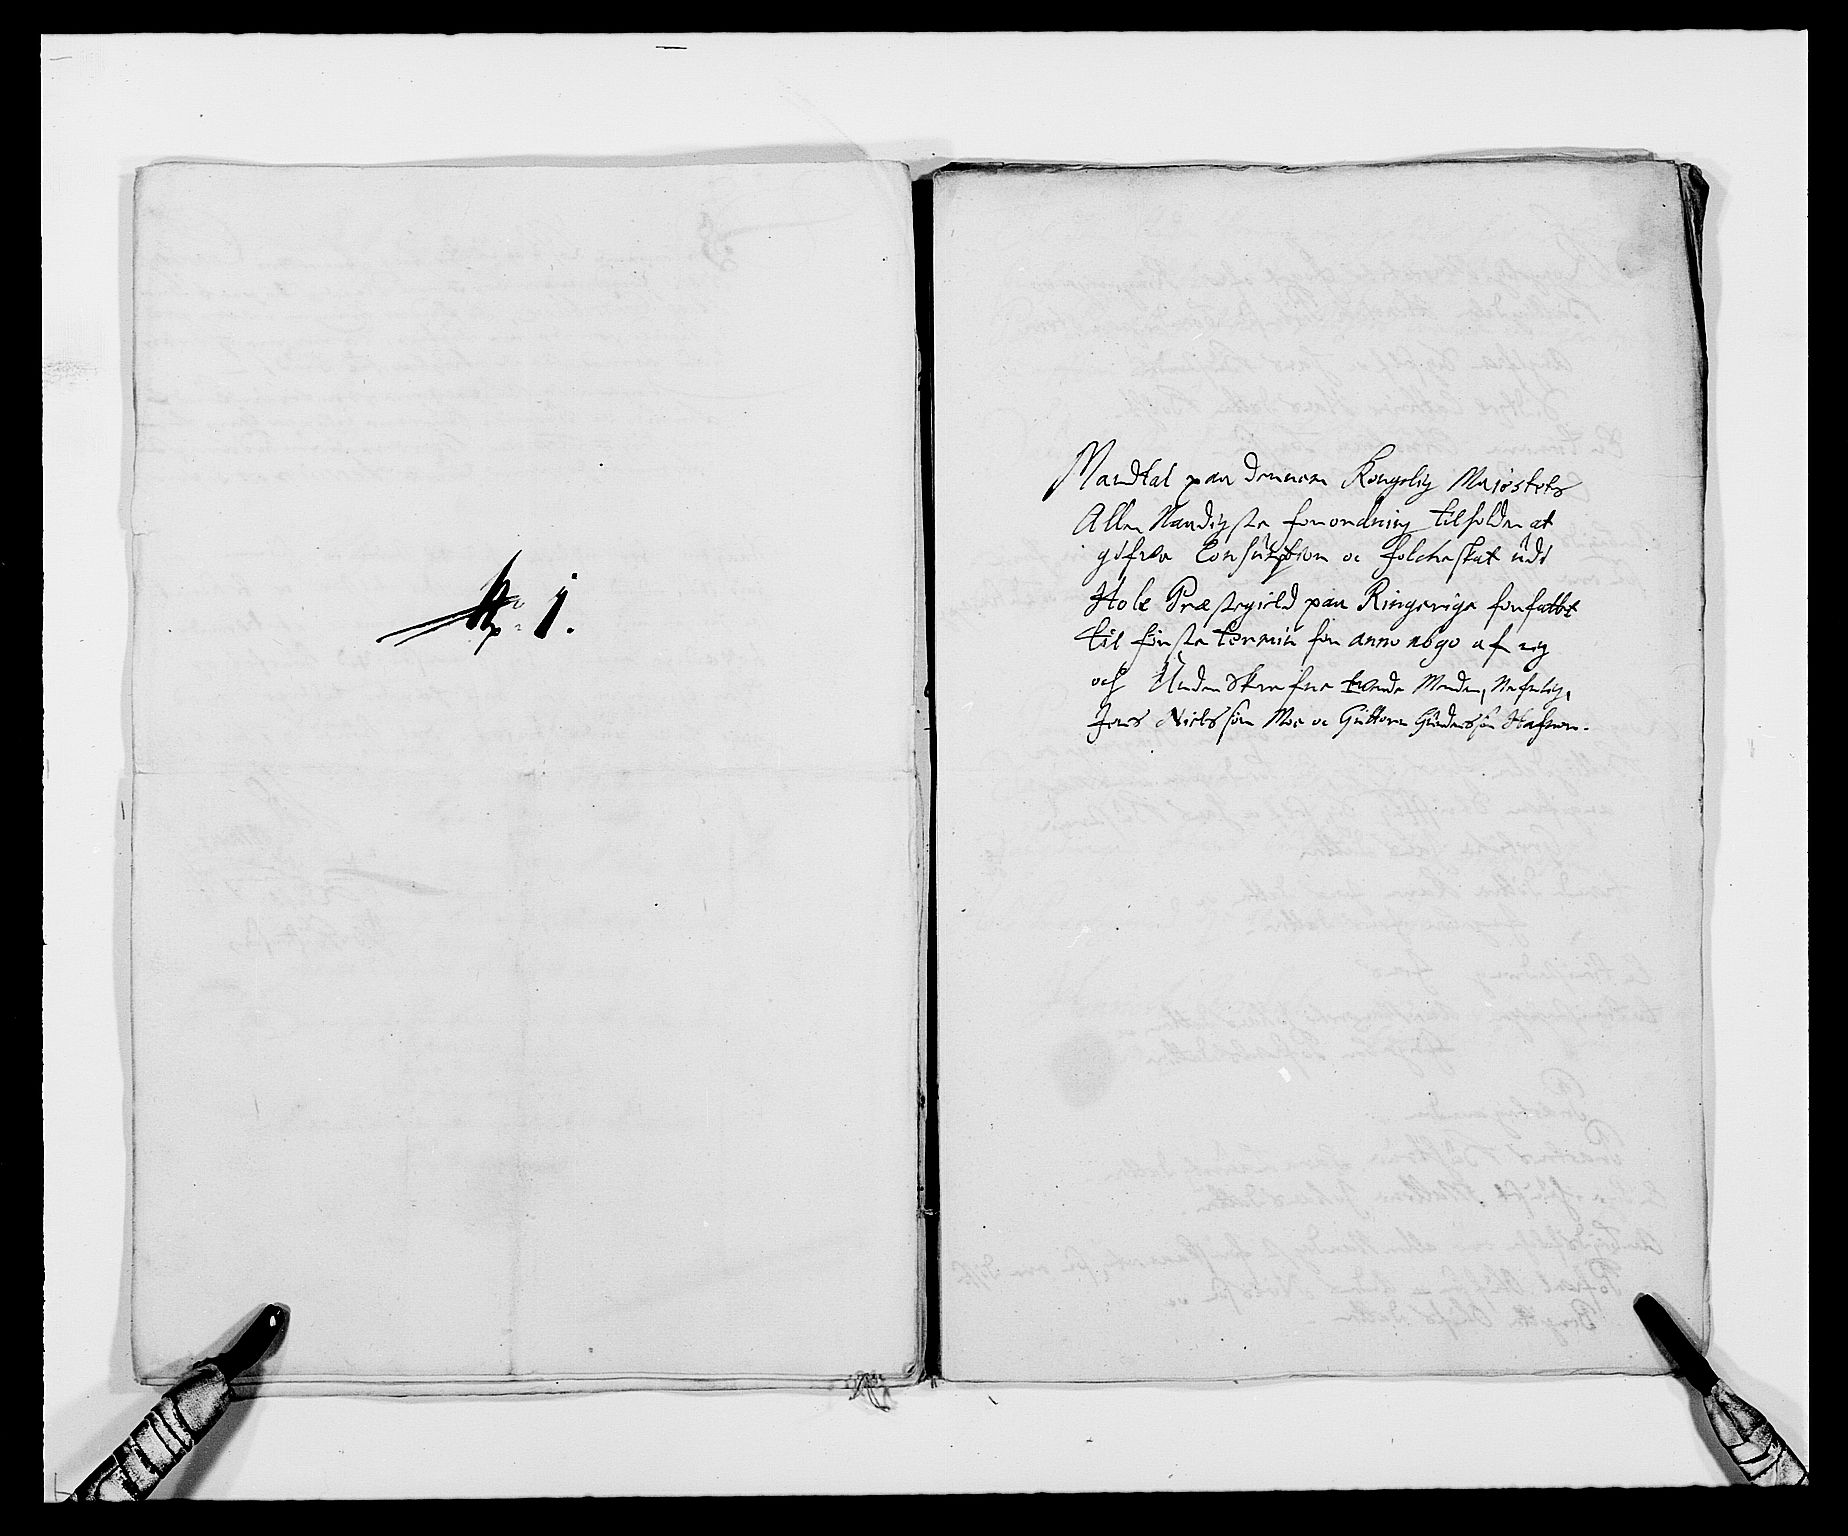 No 1.
Mandtal paa dennem Kongelig Maiestets
Aller Naadigste forordning tilholder at
gifve Consumption oc folcheskat udi
Hole Præstegield paa Ringerige forfattet
til förste termin for anno 1690 af mig
och Underskrefne tvende Mend, Nefnlig,
Jens Nielssön Moe oc Guttorm Gudmssön Hafnor.